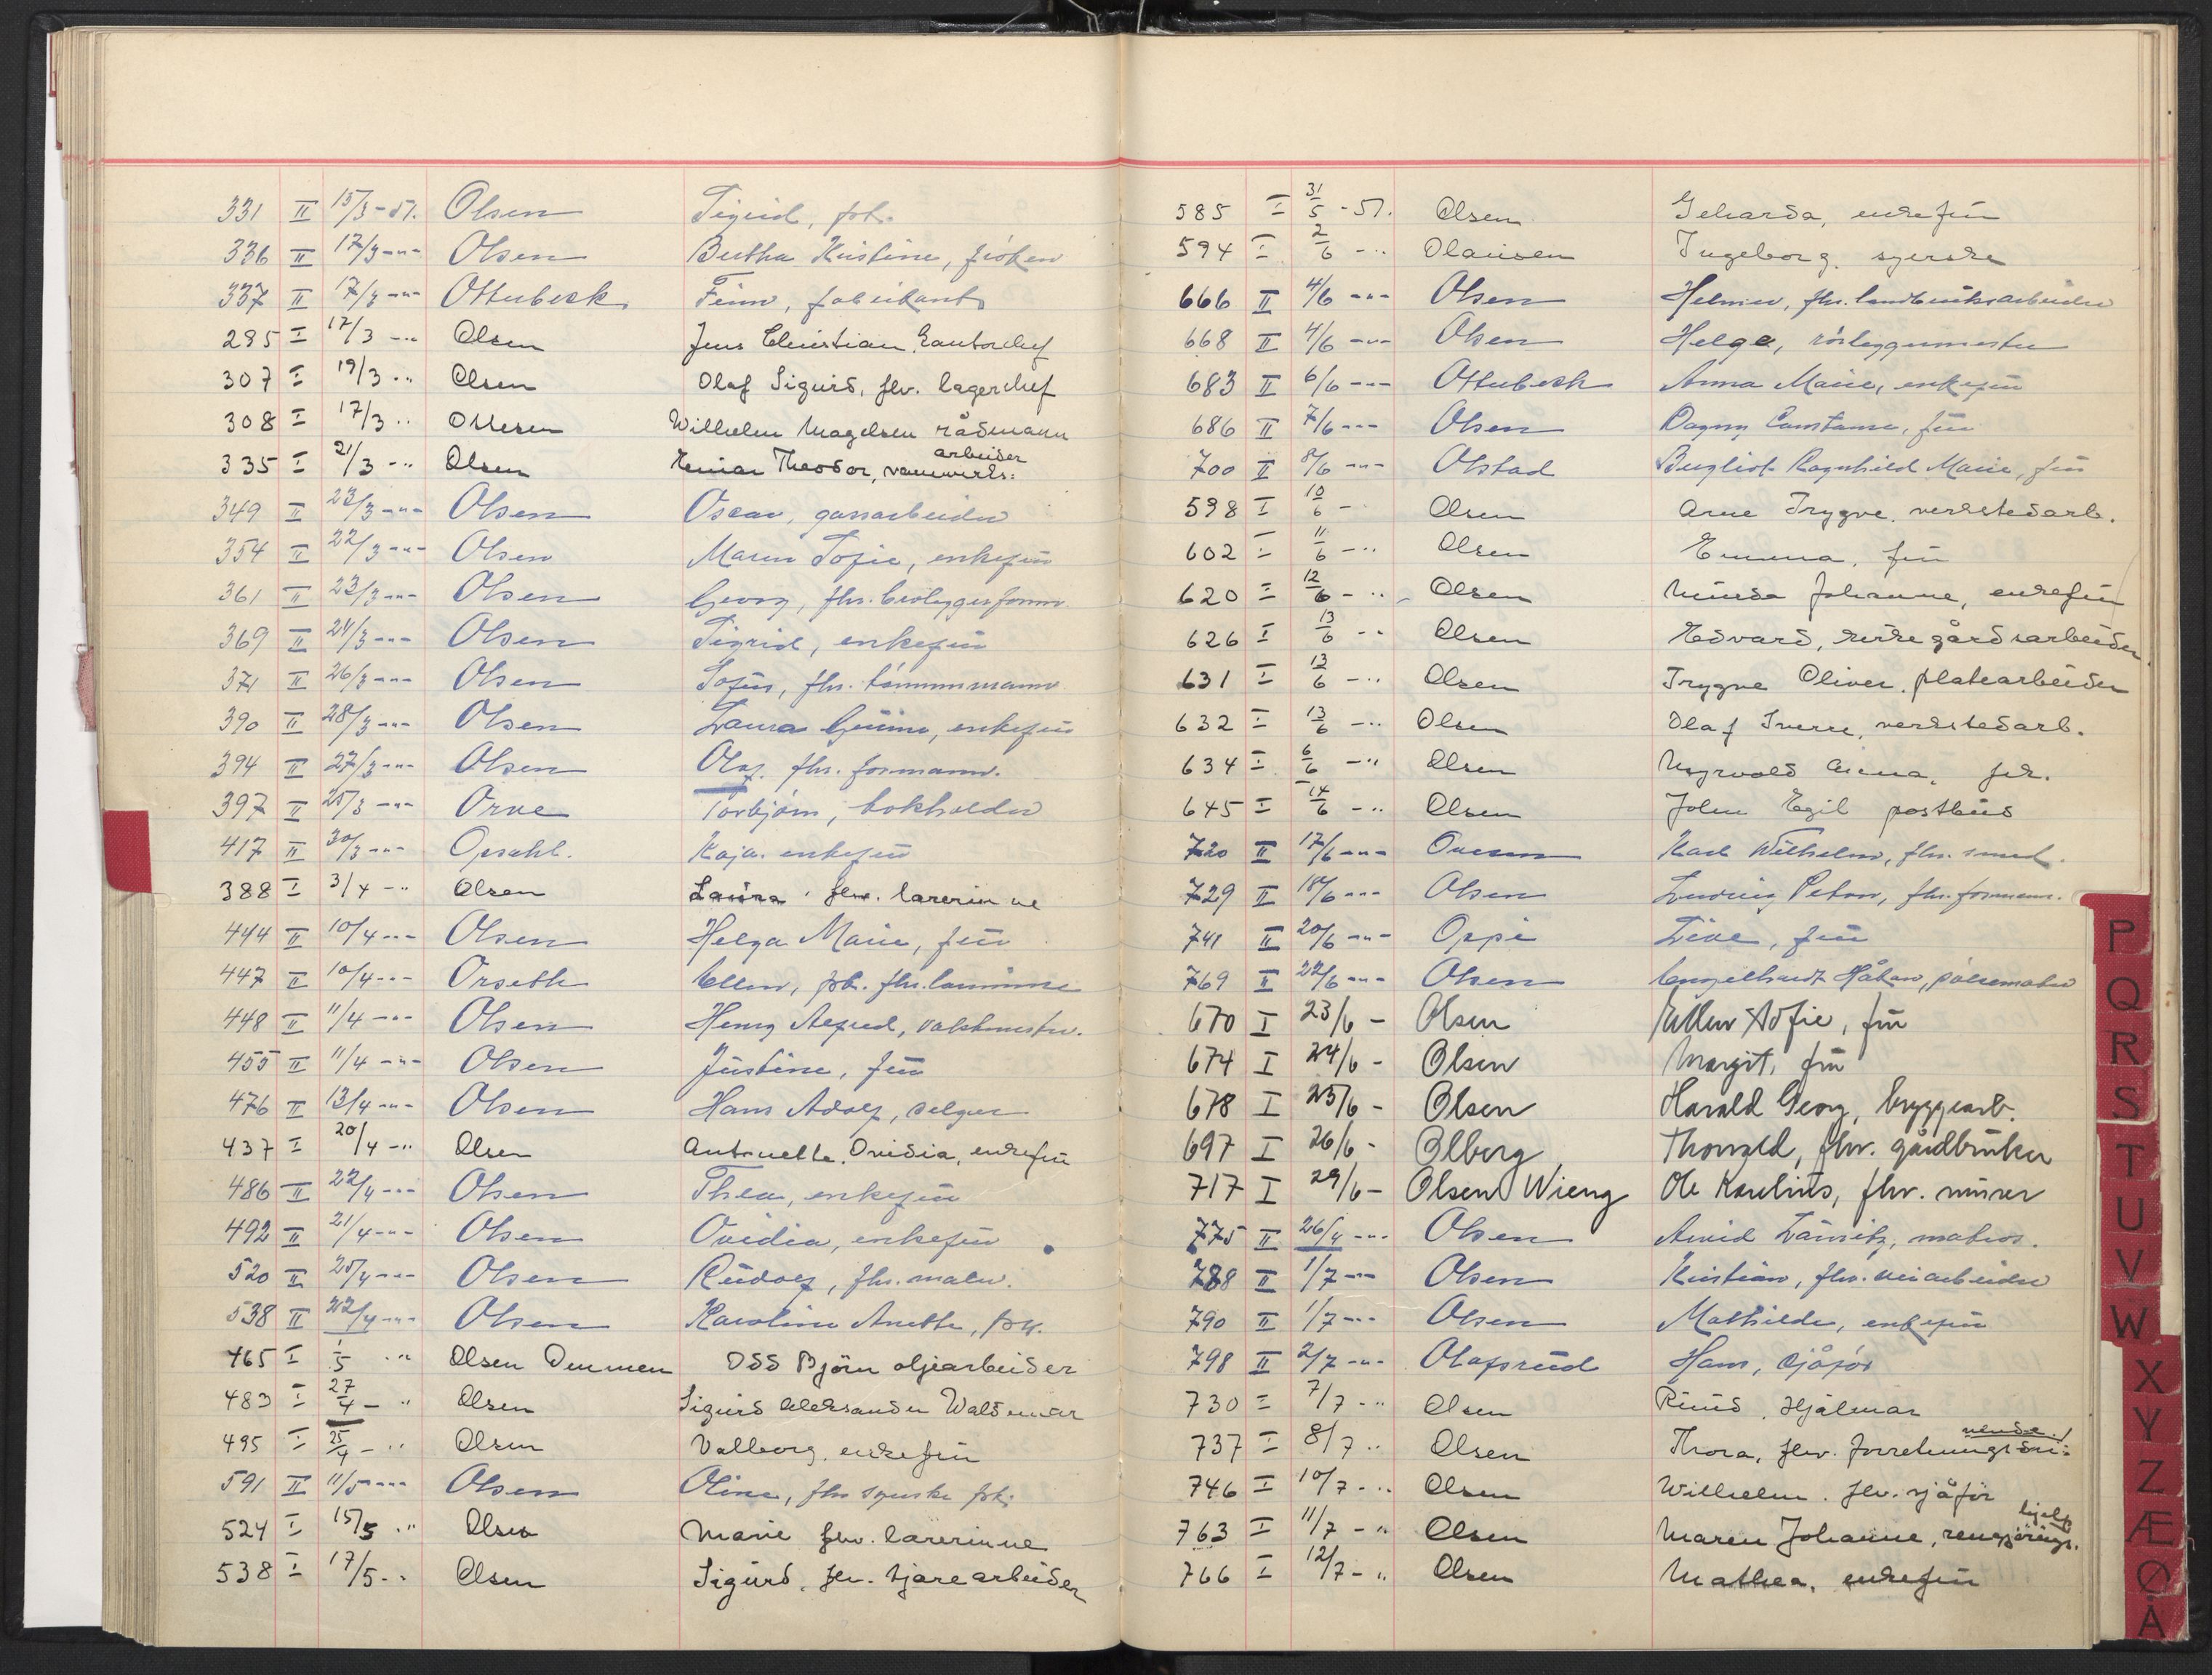 331 II 15/3-51. Olsen Sigrid, frk.
336 II 17/3-"- Olsen Bertha Kristine, frøken
337 II 17/3-"- Otterbeck Finn, fabrikant
285 I 17/3 -" Olsen Jens Christian, kontorchef
307 I 19/3 -" Olsen Olaf Sigurd, fhv. lagerchef
308 I 17/3 -" Ottesen Wilhelm Magelsen rådmann
335 I 21/3 -" Olsen Einar Theodor, vannverks: arbeider
349 II 23/3-"- Olsen Oscar, gassarbeider
354 II 22/3-"- Olsen Maren Sofie, enkefru
361 II 23/3-"- Olsen Georg, fhv. brolegger form.
369 II 24/3-"- Olsen Sigrid, enkefru
371 II 26/3-"- Olsen Sofus, fhv. tømmermann
390 II 28/3-"- Olsen Laura, enkefru
394 II 27/3-"- Olsen Olaf, fhv. formann.
397 II 25/3-"- Orve Torbjørn, bokholder
417 II 30/3-"- Opsahl. Kaja. enkefru
388 I 3/4 -" Olsen Laura, fhv. lærerinne
444 II 10/4-"- Olsen Helga Marie, fru
447 II 10/4-"- Orseth Ellen, frk. fhv. lærerinne
448 II 11/4-"- Olsen Henry Alfred, vaktmester.
455 II 11/4-"- Olsen Justine, fru
476 II 13/4-"- Olsen Hans Adolf, selger
437 I 20/4 -" Olsen Antonette Ovidia, enkefru
486 II 22/4-"- Olsen Thea, enkefru
492 II 21/4-"- Olsen Ovidia, enkefru
520 II 25/4-"- Olsen Rudolf, fhv. maler.
538 II 22/4-"- Olsen Karoline Anethe, frk.
465 I 1/5 -" Olsen Demmen Odd Bjørn oljearbeider
483 I 27/4 -" Olsen Sigurd Aleksander Waldemar
495 I 25/4 -" Olsen Valborg, enkefru
591 II 11/5-"- Olsen Oline, fhv syerske frk.
524 I 15/5 -" Olsen Marie fhv. lærerinne
538 I 17/5 -" Olsen Sigurd, fhv. tjærearbeider
585 I 31/5 -51. Olsen Geharda, enkefru
594 I 2/6 -" Olausen Ingeborg, syerske
666 II 4/6-"- Olsen Helmer, fhv. landbruksarbeider
668 II 4/6-"- Olsen Helge, rørleggermester
683 II 6/6-"- Otterbech Anna Marie, enkefru
686 II 7/6-"- Olsen Dagny Constance, fru
700 II 8/6-"- Olstad Bergliot Ragnhild Marie, fru
598 I 10/6 - Olsen Arne Trygve, verkstedarb.
602 I 11/6 -" Olsen Emma, fru
620 I 12/6 -" Olsen Minda Johanne, enkefru
626 I 13/6 -" Olsen Edvard, kirkegårdsarbeider
631 I 13/6 -" Olsen Trygve Oliver, platearbeider
632 I 13/6 -" Olsen Olaf Sverre, verkstedarb.
634 I 6/6 -" Olsen Myrvold Anna, frk.
645 I 14/6 -" Olsen John Egil postbud
720 II 17/6-"- Ovesen Karl Wilhelm, fhv. smed.
729 II 18/6-"- Olsen Ludvig Petter, fhv. formann.
741 II 20/6-"- Oppi Live, fru
769 II 22/6-"- Olsen Engelhardt Håkon, pølsemaker
670 I 23/6 - Olsen Ellen Sofie, fru
674 I 24/6 - Olsen Margit, fru
678 I 25/6 - Olsen Harald Georg, bryggearb.
697 I 26/6 - Olberg Thorvald, fhv. gårdbruker
717 I 29/6 - Olsen Wieng Ole Karelius, fhv. murer
775 II 26/4-"- Olsen Arvid, matros.
788 II 1/7-"- Olsen Kristian, fhv. veiarbeider
790 II 1/7-"- Olsen Mathilde, enkefru
798 II 2/7-"- Olafsrud Hans, sjåfør
730 I 7/7 -" Olsen Ruud, Hjalmar
737 I 8/7 -" Olsen Thora, fhv. forretningsdri: vende.
746 I 10/7 -" Olsen Wilhelm. fhv. sjåfør
763 I 11/7 -" Olsen Maren Johanne, rengjørings. hjelp
766 I 12/7 -" Olsen Mathea, enkefru
P
Q
R
S
T
U
V
W
X
Y
Z
Æ
Ø
Å